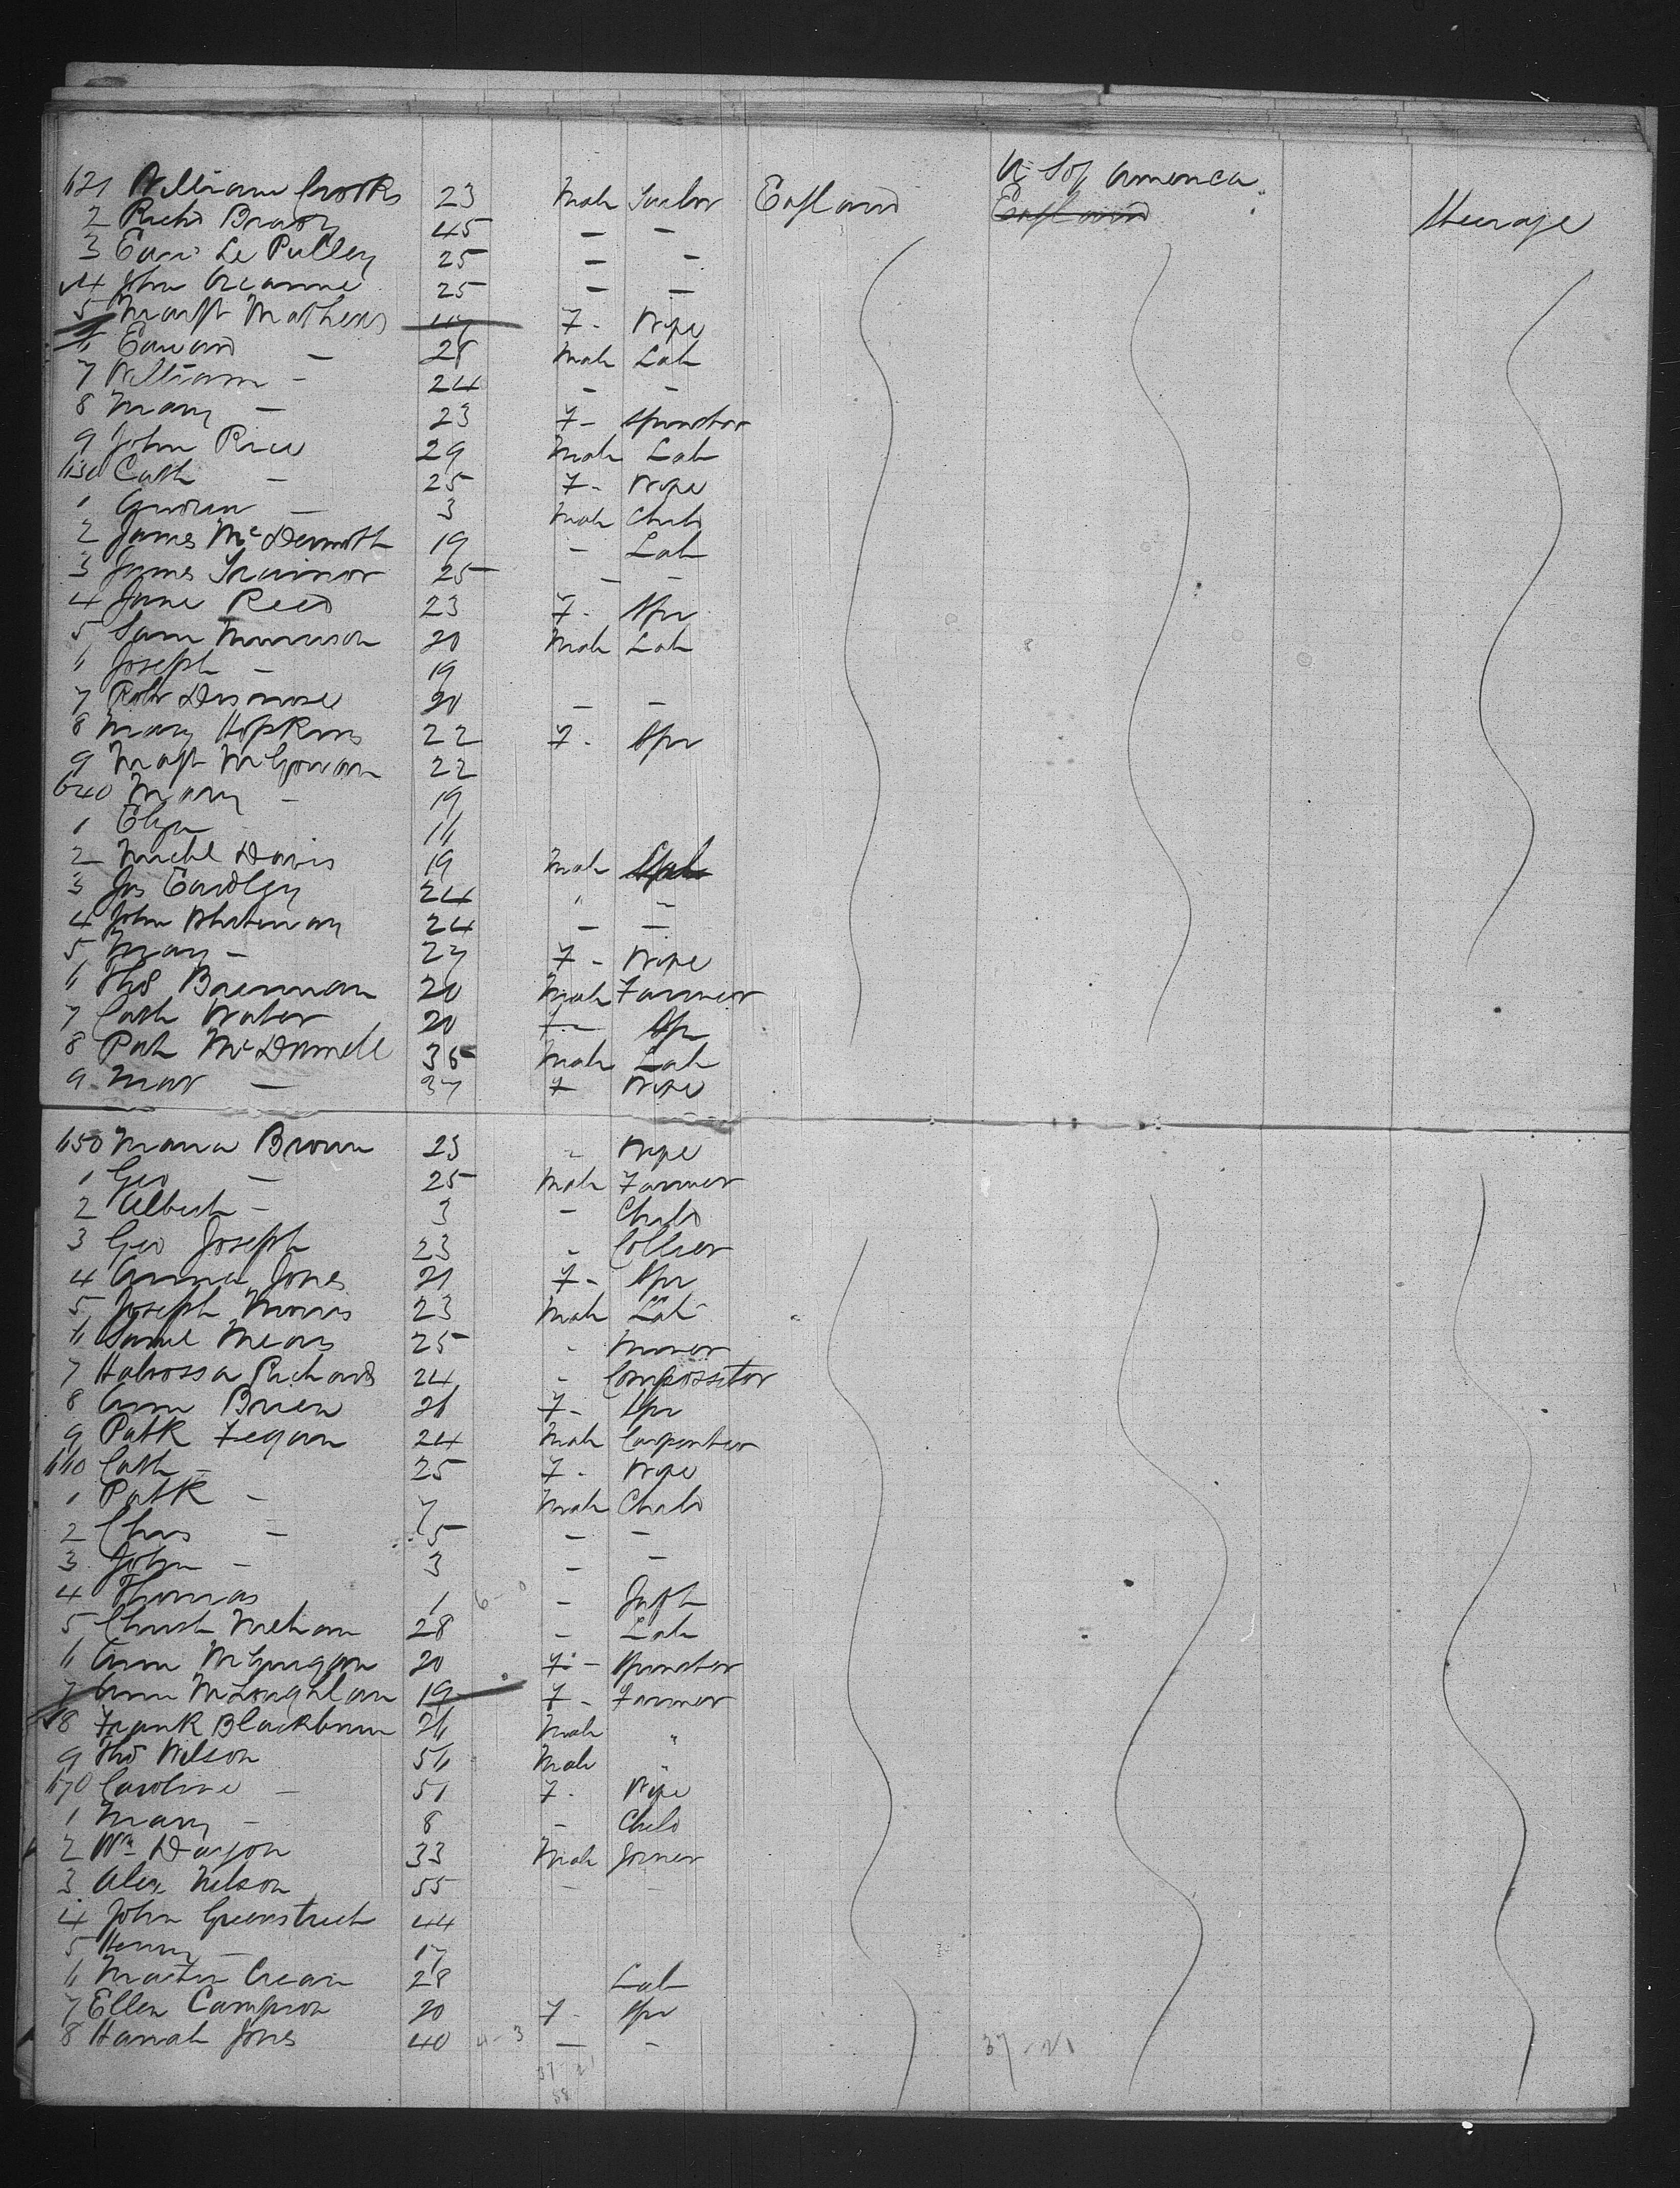 U S of America
621 William Crooks 23 Male Tailor England England Steerage
2 Richd Brady 45 — —
3 Edwd Le Pulley 25 — —
4 John 25 — —
5 Margt Mathews 7- Wife
6 Edward — 28 Male Lab
7 William — 24 — —
8 Mary — 23 7- Spinster
9 John Rice 29 Male Lab
630 Cath — 25 7- Wife
1 — 3 Male Child
2 James McDermott 19 — Lab
3 James Trainor 25 — —
4 Jane Reed 23 7- Spr
5 Saml Morrison 20 Male Lab
6 Joseph — 19
7 Robt 20 — —
8 Mary Hopkins 22 7- Spr
9 Magt McGowan 22
640 Mary — 19
1 Eliza 16
2 Michl Davis 19 Male
3 Jas Eardley 24 " —
4 John Whiteway 24 — —
5 Mary — 27 7- Wife
6 Thos Brennan 20 Male Farmer
7 Cath Water 20 7- Spr
8 Pat McDonnell 36 Male Lab
9 Mar — 37 7 Wife
650 Maria Brown 23 " Wife
1 Geo — 25 Male Farmer
2 Albert — 3 - Child
3 Geo Joseph 23 " Collier
4 Anna Jones 21 7- Spr
5 Joseph Morris 23 Male Lab
6 Saml Mears 25 " Miner
7 Richards 24 " Compositor
8 Ann Brien 26 7- Spr
9 Patk Fegan 24 Male Carpenter
660 Cath — 25 7- Wife
1 Patk — 7 Male Child
2 Chas — 5 — —
3 John — 3 — —
4 Thomas 1 - Inft
5 Meehan 28 - Lab
6 Ann McGuigan 20 7- Spinster
7 Ann McLoughlan 19 7- Farmer
8 Frank Blackburn 26 Male "
9 Thos Wilson 56 Male "
670 Caroline — 51 7- Wife
1 Mary — 8 - Child
2 Wm Dayson 33 Male Joiner
3 Alex Nelson 55 — —
4 John Greenstreet 44
5 Henry — 17
6 Martin Crean 28 Lab
7 Ellen Campion 20 7- Spr
8 Hannah Jones 40 4-3 — — 37-21
37-21